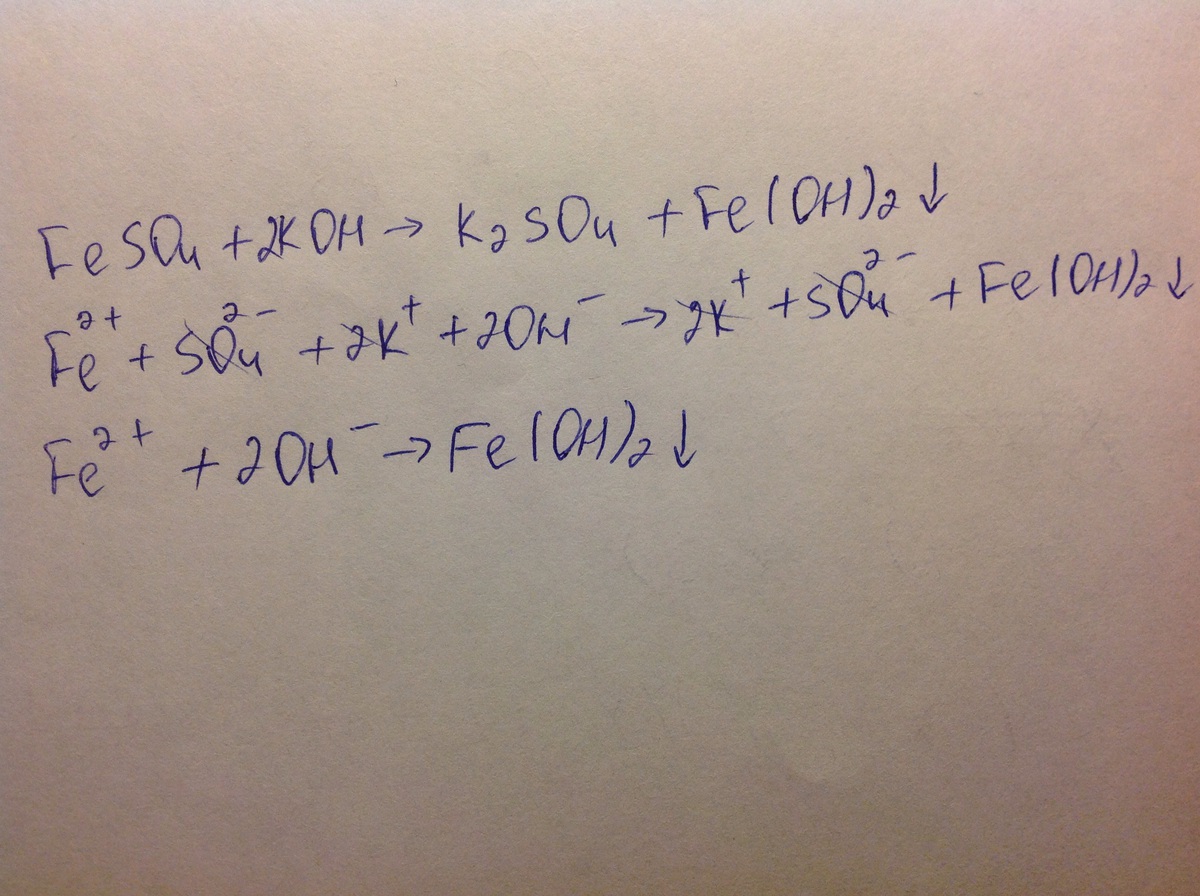 FeSO₄ + 2KOH → K₂SO₄ + Fe(OH)₂↓
Fe²⁺ + SO₄²⁻ + 2K⁺ + 2OH⁻ → 2K⁺ + SO₄²⁻ + Fe(OH)₂↓
Fe²⁺ + 2OH⁻ → Fe(OH)₂↓